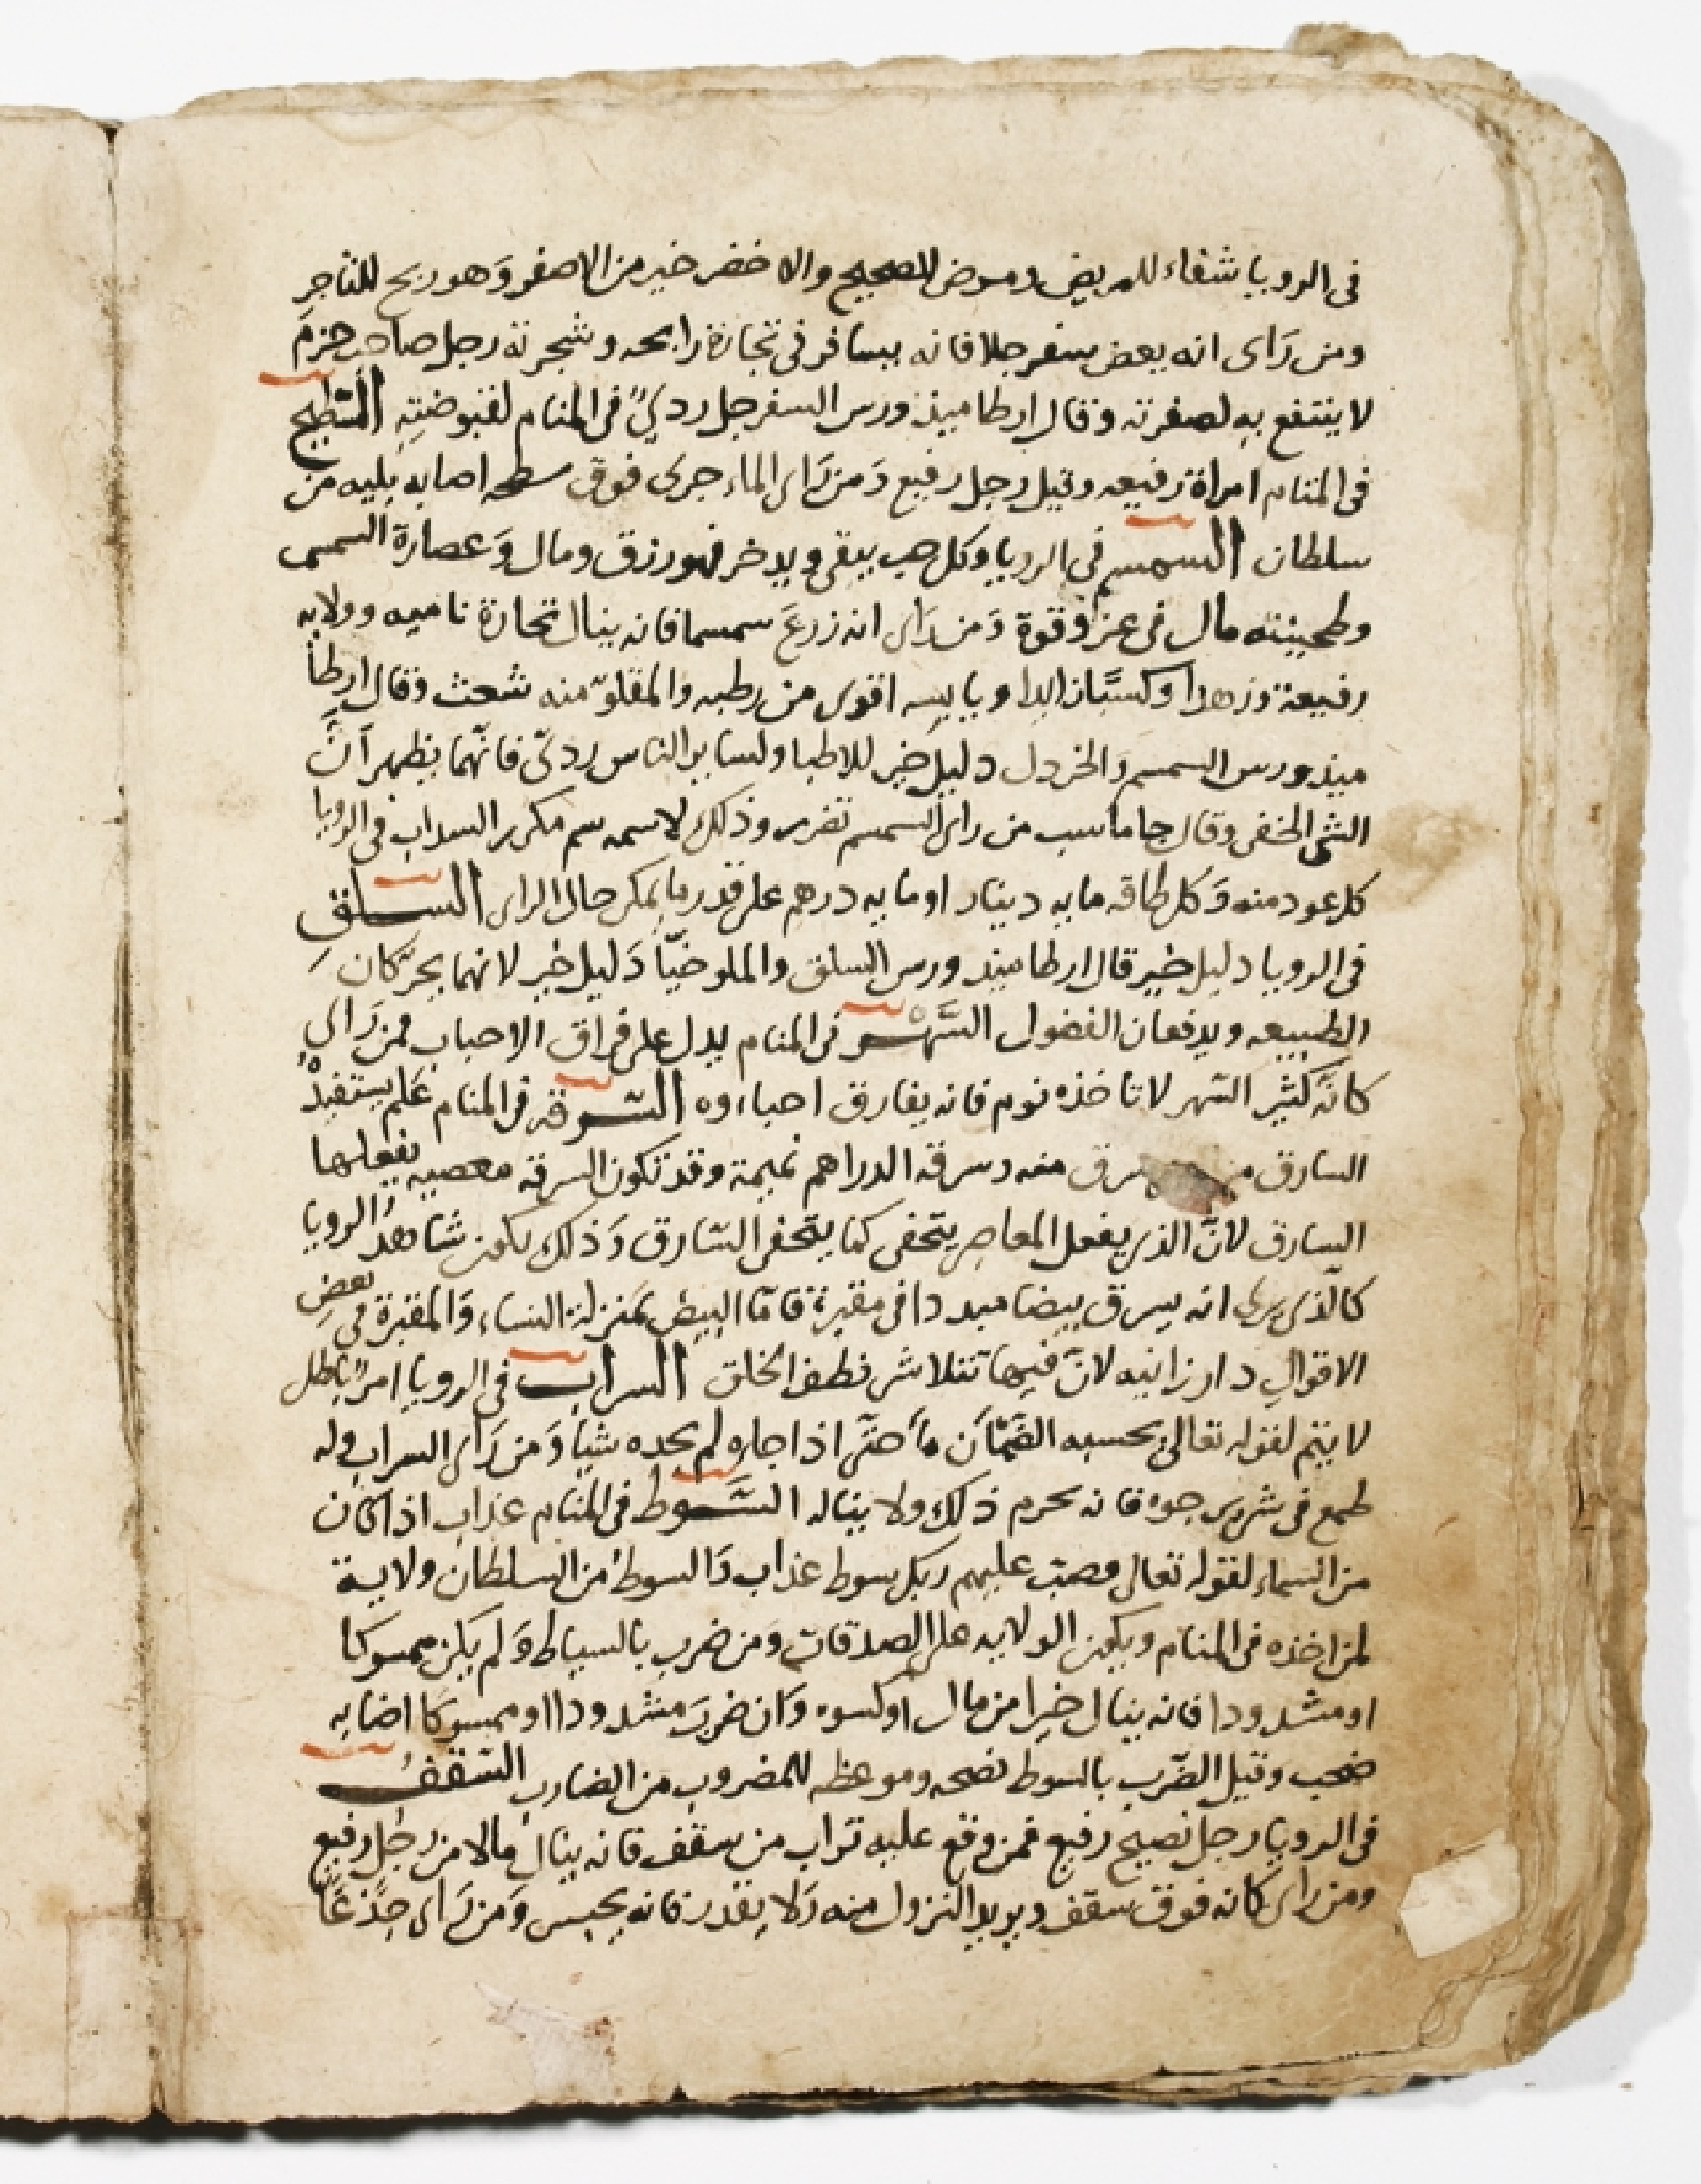 في الرويا شفاء للمريض ومرض للصحيح والاخضر خير من الاصفر وهو ربح للتاجر
ومن رَاى انه يعض سفرجلا فانه يسافر في تجارة رابحه وشجرته رجل صاحب حزم
لا ينتفع به لصفرته وقال ارطاميذورس السفرجل رديٌ في المنام لقبوضته السّطح
في المنام امراة رفيعه وقيل رجل رفيع وَمن رَاى الماء جرى فوق سطحه اصابه بليه من
سلطان السمسم في الرويا وكل حب يبقى ويدخر فهو رزق ومال وَعصارة السمسم
وطحينته مال في عز وقوة وَمن رَاى انه زرعَ سمسما فانه ينال تجارة ناميه وولايه
رفيعة وزهدا وكسبًا زايدا ويابسه اقوى من رطبه والمقلوّ منه شعث وقال ارطا
ميذورس السمسم والخردل دليل خير للاطبا ولساير الناس رديّ فانّهما يظهر انّ
الشى الخفى وقال جاماسب من راى السمسم تضرر وذلك لاسمه سم مكرر السداب في الرويا
كل عود منه وَكل طاقه مايه دينار او مايه درهم على قدر ما يمكن حال الراى السلق
في الرويا دليل خير قال ارطاميذورس السلق والملوخيّا دَليل خير لانهما يحرّكان
الطبيعه ويدفعان الفضول السّهر في المنام يدل على فراق الاحباب فمن رَاى
كانّه كثير السّهر لا تاخذه نوم فانه يفارق احباءوه السّرقه في المنام عَلم يستفيدهُ
السارق من سرق منه وسرقه الدراهم نميمة وقد تكون السرقه معصيه يفعلها
السارق لانّ الذى يفعل المعاصى يتخفى كما يتخفى السّارق وَذلك لكمن شاهدُ الرويا
كالّذى يرى انه يسرق بيضا مبددا في مقبرة فامّا البيض بمَنزلة النساء وَالمقبرة في بعضِ
الاقوالِ دار زانيه لانّ فيها تتلاشى نطف الخلق السراب في الرويا امرٌ باطل
لا يتم لقوله تعالى يحسبه الضمّآن مآ حتّى اذا جاه لم يجده شيا وَمن رَاى السراب وله
طمع في شى يرجوه فانه يحرم ذلك ولا يناله السَّوط في المنام عذاب اذا كان
من السماء لقوله تعالى فصبّ عليهم ربك سوط عذاب وَالسوط من السلطان ولاية
لمن اخذه في المنام ويكون الولايه على الصدقات ومن ضرب بالسياط وَلم يكن ممسوكا
او مشدودا فانه ينال خيرا من مال او كسوه وَان ضرب مشدودا او ممسوكا اصابه
صخب وقيل الضّرب بالسوط نصحه وموعظه للمضروب من الضارب السّقفُ
في الرويا رجل نصيح رفيع فمن وقع عليه تراب من سقف فانه ينال مالا من رجل رفيع
ومن راى كانه فوق سقف ويريد النزول منه وَلا يقدر فانه يحبس وَمن رَاى جِذعًا